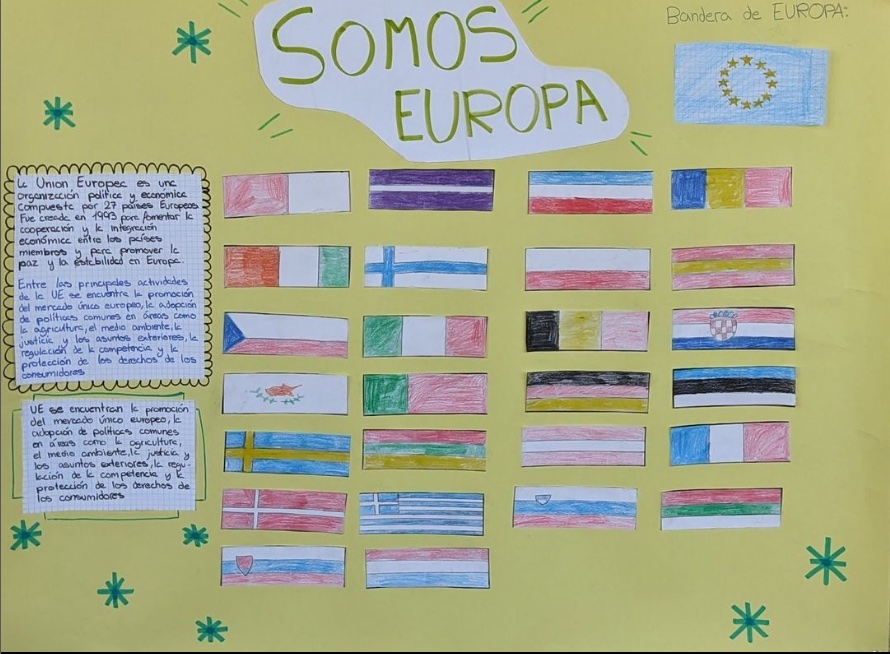 SOMOS
EUROPA
Bandera de EUROPA:
La Union Europea es una
organización política y económica
compuesta por 27 países Europeos
Fue creada en 1993 para fomentar la
cooperación y la integración
económica entre los países
miembros y para promover la
paz y la estabilidad en Europa.
Entre las principales actividades
de la UE se encuentra la promoción
del mercado único europeo, la adopción
de políticas comunes en áreas como
la agricultura, el medio ambiente, la
justicia y los asuntos exteriores, la
regulación de la competencia y la
protección de los derechos de los
consumidores
UE se encuentran la promoción
del mercado único europeo, la
adopción de políticas comunes
en áreas como la agricultura,
el medio ambiente, la justicia y
los asuntos exteriores, la regu-
lación de la competencia y la
protección de los derechos de
los consumidores